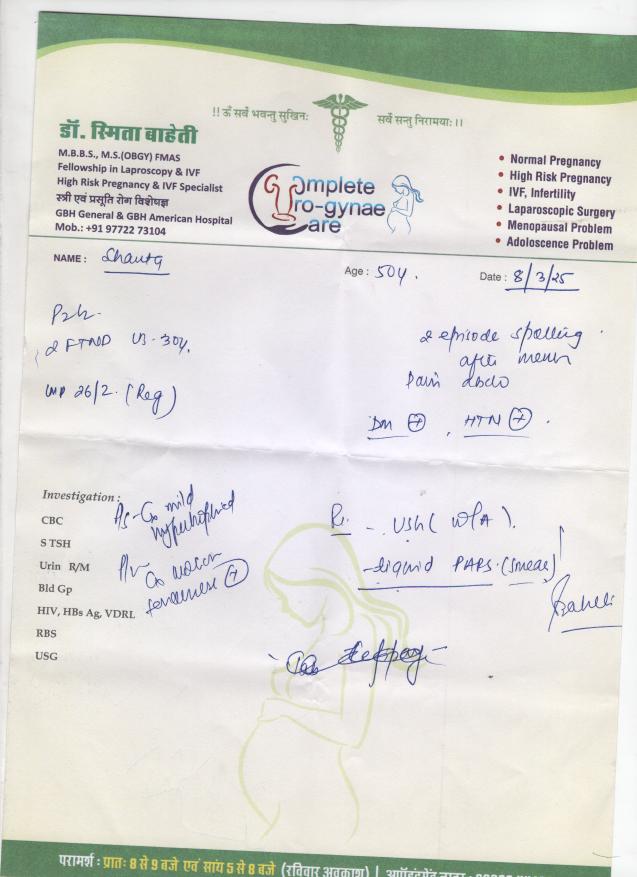 !! ॐ सर्वे भवन्तु सुखिनः सर्वे सन्तु निरामयाः ।।
डॉ. स्मिता बाहेती
M.B.B.S., M.S.(OBGY) FMAS
Fellowship in Laproscopy & IVF
High Risk Pregnancy & IVF Specialist
स्त्री एवं प्रसूति रोग विशेषज्ञ
GBH General & GBH American Hospital
Mob.: +91 97722 73104
Complete
Uro-gynae
Care
• Normal Pregnancy
• High Risk Pregnancy
• IVF, Infertility
• Laparoscopic Surgery
• Menopausal Problem
• Adoloscence Problem
NAME : Shanta Age : 50y. Date : 8/3/25
P2L2
2 FTND LB-30y.
LMP 26/2. (Reg)
2 episode spotting
after menses
Pain abdo
DM (+), HTN (+).
Investigation :
CBC
S TSH
Urin R/M
Bld Gp
HIV, HBs Ag, VDRL
RBS
USG
P/s - Cx mild
hypertrophied
P/v - Cx
tenderness (+)
R. - USG (W/A).
- liquid PAPS. (Smear)
परामर्श : प्रातः 8 से 9 बजे एवं सायं 5 से 8 बजे (रविवार अवकाश) |